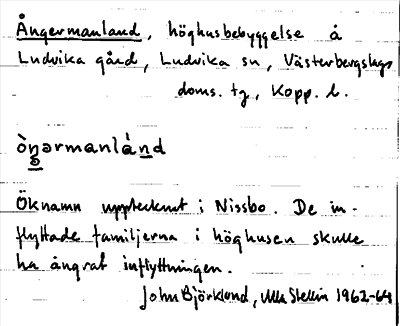 Ångermanland, höghusbebyggelse å
Ludvika gård, Ludvika sn, Västerbergslags
doms. tg, Kopp. l.
òŋərmanlànd
Öknamn upptecknat i Nissbo. De in-
flyttade familjerna i höghusen skulle
ha ångrat inflyttningen.
John Björklund, Ulla Stellin 1962-64